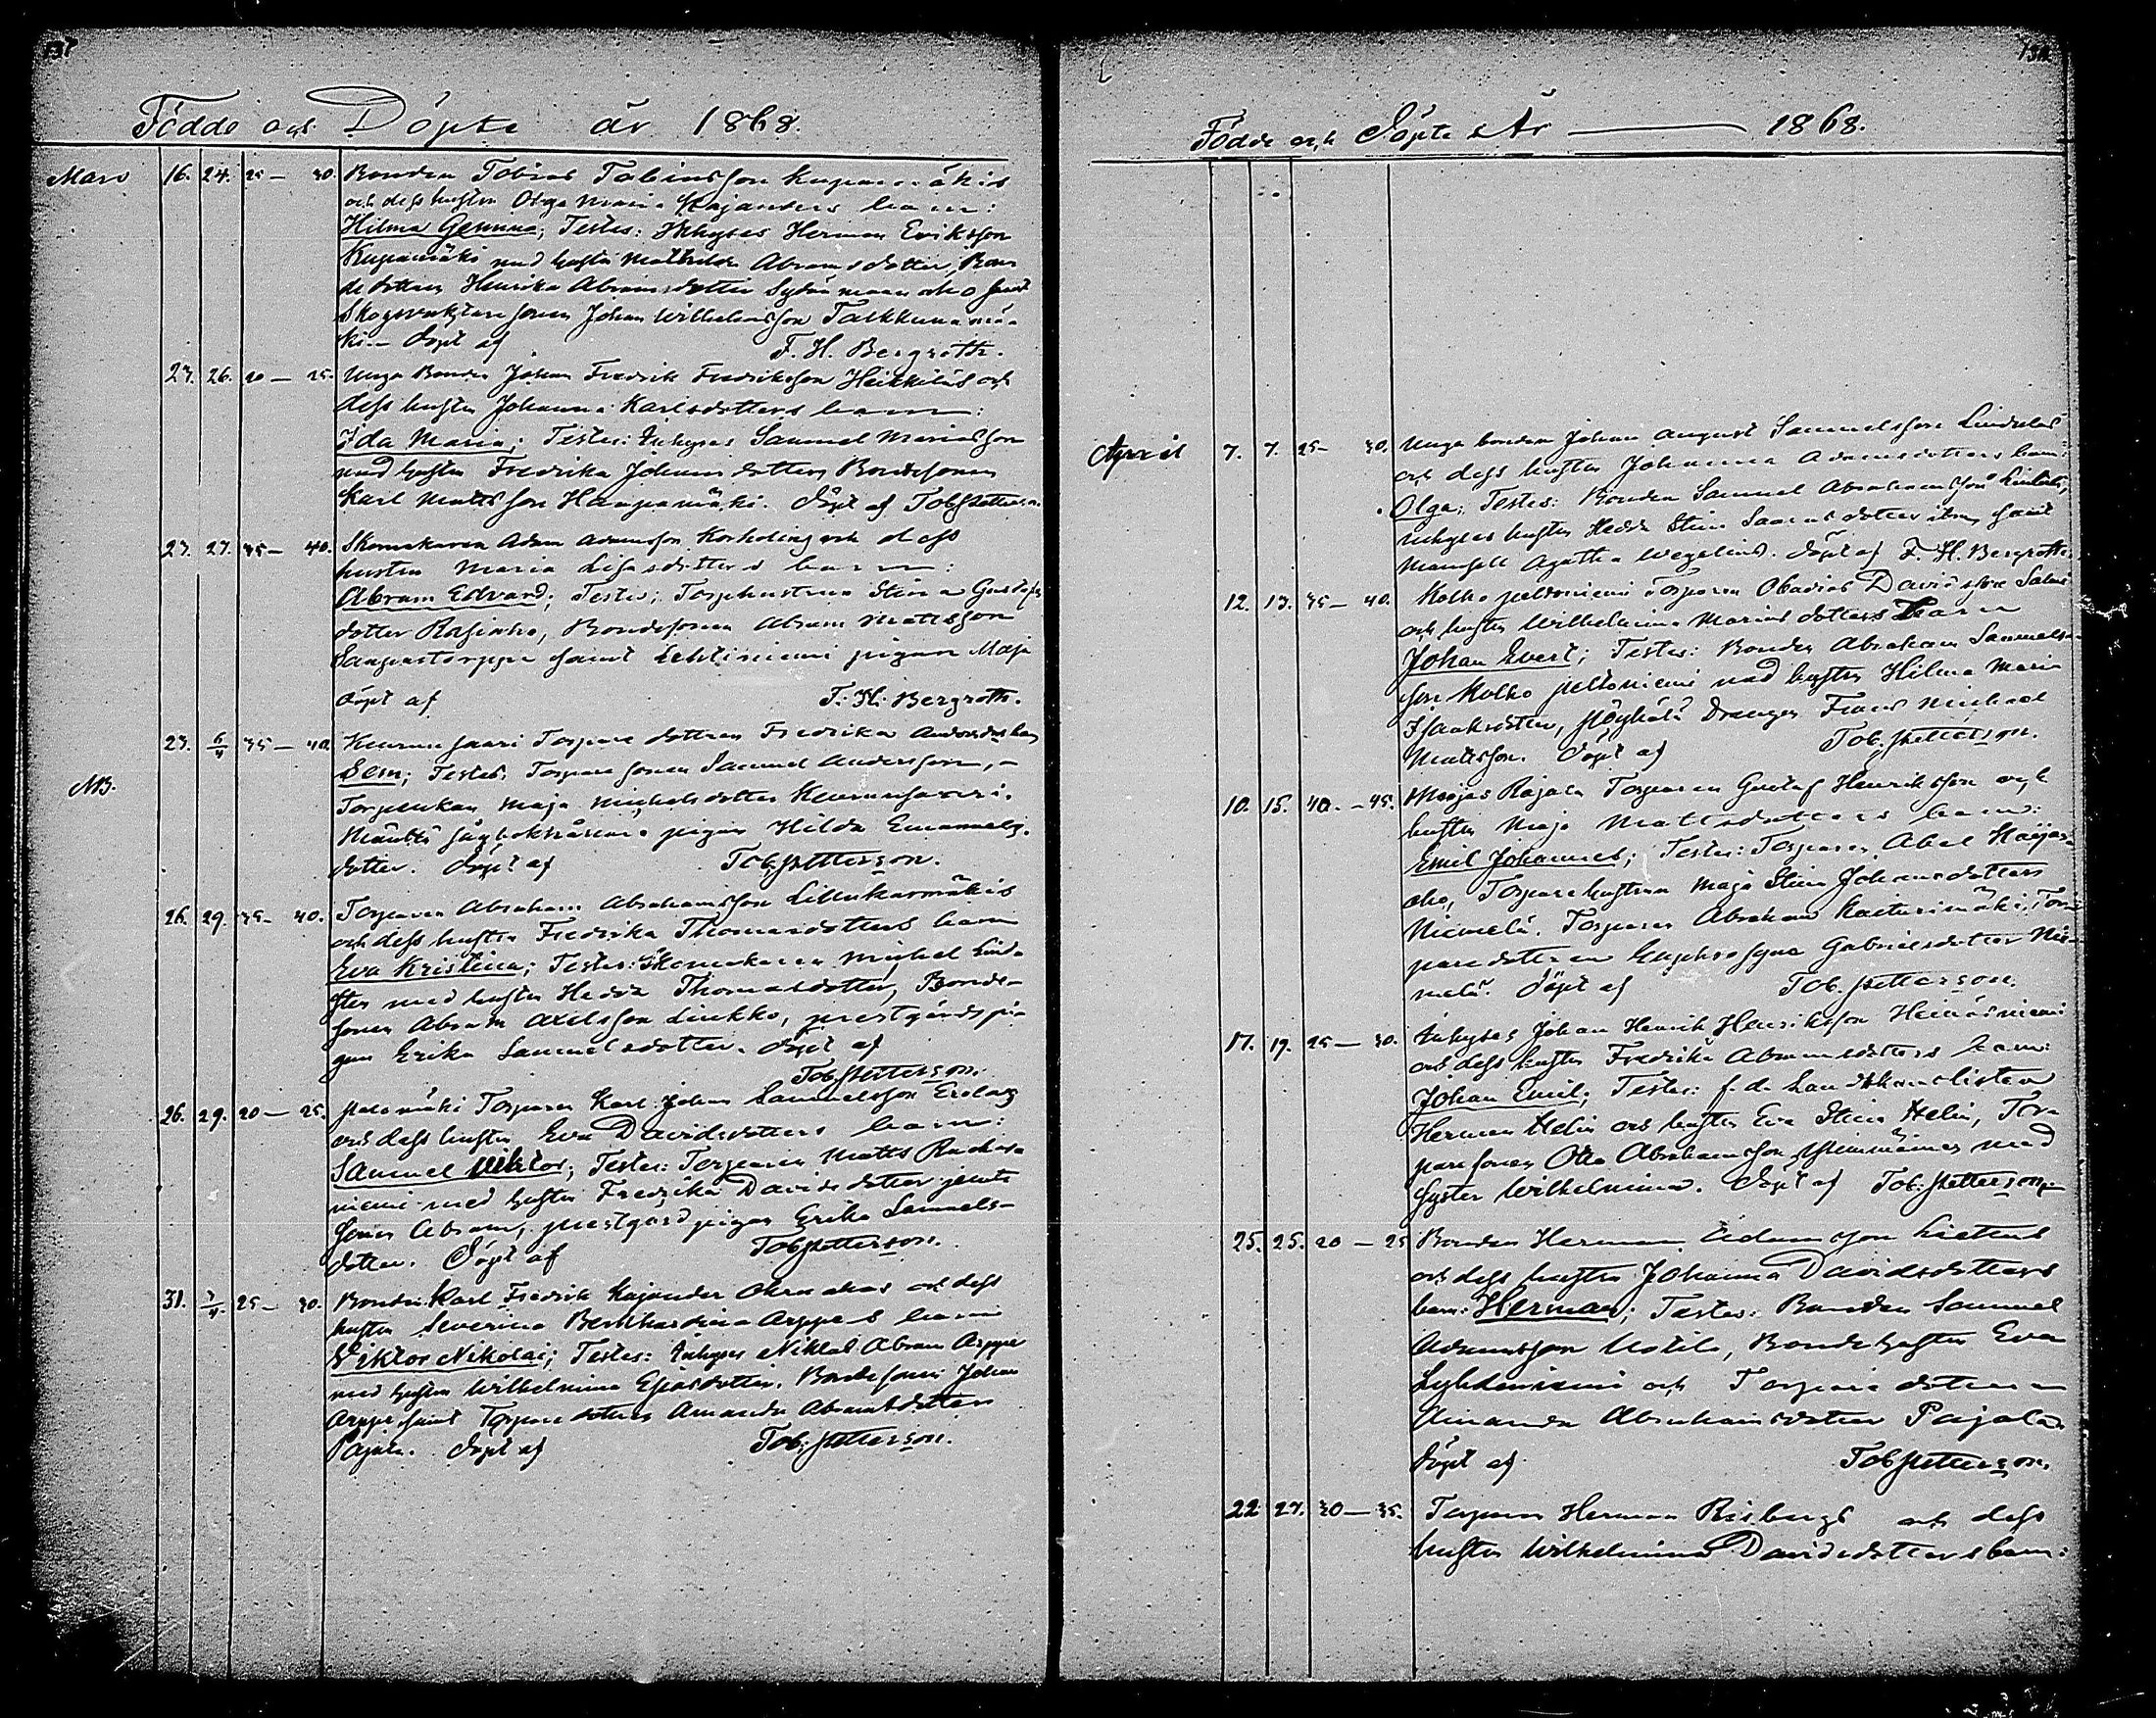 137
Födde och Döpte år 1868.
Mars 16. 24. 25 — 30. Bonden Tobias Tobiasson Kupanmäkis
och dess hustru Olga Maria Kajanders barn:
Hilma Gemina; Testes: Inhyses Herman Eriksson
Kupanmäki med hustru Mathilda Abramsdotter, Bon-
dedottren Henrika Abramsdotter Sydänmaanaho samt
Skogsvaktaresonen Johan Wilhelmsson Talkkunamä-
ki. — Döpt af F. H. Bergroth.
23. 26. 20 — 25. Unga Bonden Johan Fredrik Fredriksson Heikkiläs och
dess hustru Johanna Karlsdotters barn:
Ida Maria; Testes: Inhyses Samuel Mariasson
med hustru Fredrika Johansdotter, Bondesonen
Karl Mattsson Haapamäki. Döpt af Tob. Petterson.
23. 27. 35 — 40. Skomakaren Adam Adamsson Korholins och dess
hustru Maria Lisasdotters barn:
Abram Edvard; Testes: Torphustrun Stina Gustafs-
dotter Rasinaho, Bondesonen Abram Mattsson
samt Lehtiniemi pigan Maja
Döpt af F. H. Bergroth.
23. 5/4 35 — 40. Keurunsaari Torparedottren Fredrika Andersdrs barn
Sem; Testes: Torparesonen Samuel Andersson, –
NB. Torpenkan Maja Michelsdotter Keurunsaari.
Mänttä pigan Hilda Emanuels-
dotter. Döpt af Tob. Petterson.
26. 29. 35 — 40. Torparen Abraham Abrahamsson Lillukanmäkis
och dess hustru Fredrika Thomasdotters barn
Eva Kristina; Testes: Skomakaren Michel Lind-
med hustru Hedda Thomasdotter, Bonde-
sonen Abram Axelsson Liukko, prestgårdspi-
gan Erika Samuelsdotter. Döpt af
Tob. Petterson.
26. 29. 20 — 25. Torparen Karl Johan Samuelsson
och dess hustru Eva Davidsdotters barn:
Samuel Viktor; Testes: Torparen Matts
niemi med hustru Fredrika Davidsdotter jemte
sonen Abram, prestgårdpigan Erika Samuels-
dotter. Döpt af Tob. Petterson.
31. 3/4 25 — 30. Bonden Karl Fredrik Kajander Ahomakas och dess
hustru Severina Bernhardina Arppes barn
Viktor Nikolai; Testes: Inhyses Niklas Abram Arppe
med hustru Wilhelmina Esiasdotter. Bondesonen Johan
Arppe samt Torparedottren Amanda Abramsdotter
Pajala. Döpt af Tob. Petterson.
138
Födde och Döpte År — 1868.
April 7. 7. 25 — 30. Unga bonden Johan August Samuelsson Lindelas
och dess hustru Johanna Adamsdotters barn:
Olga; Testes: Bonden Samuel Abrahamsson
inhyses hustru Hedda Stina samt
Mamsell Agatha Wegelius. Döpt af F. H. Bergroth.
12. 13. 35 — 40. Kolho peltoniemi Torparen Obadias Davidsson Salmis
och hustru Wilhelmina Mariasdotters barn
Johan Evert; Testes: Bonden Abraham Samuels-
son Kolho peltoniemi med hustru Hilma Maria
Isaaksdotter, Pöyhölä Drengen Frans Michael
Mattsson. Döpt af Tob. Petterson.
10. 15. 40. — 45. Rajala Torparen Gustaf Henriksson och
hustru Maja Mattsdotters barn:
Emil Johannes; Testes: Torparen Abel
aho, Torparehustrun Maja Stina Johansdotter
Niemelä. Torparen Abraham Tor-
paredottren Euphrosyne Gabrielsdotter Nie-
melä. Döpt af Tob. Petterson.
17. 19. 25 — 30. Inhyses Johan Henrik Henriksson Heinäsniemi
och dess hustru Fredrika Abramsdotters barn:
Johan Emil; Testes: f. d. Landtkanslisten
Herman Helin och hustru Eva Stina Helin, Tor-
paresonen Otto Abrahamsson med
syster Wilhelmina. Döpt af Tob. Petterson.
25. 25. 20 — 25 Bonden Herman Adamsson
och dess hustru Johanna Davidsdotters
barn: Herman; Testes: Bonden Samuel
Adamsson Uotila, Bondehustru Eva
och Torparedottren
Amanda Abrahamsdotter Pajala.
Döpt af Tob. Petterson.
22 27. 30 — 35. Torparen Herman Risbergs och dess
hustru Wilhelmina Davidsdotters barn: